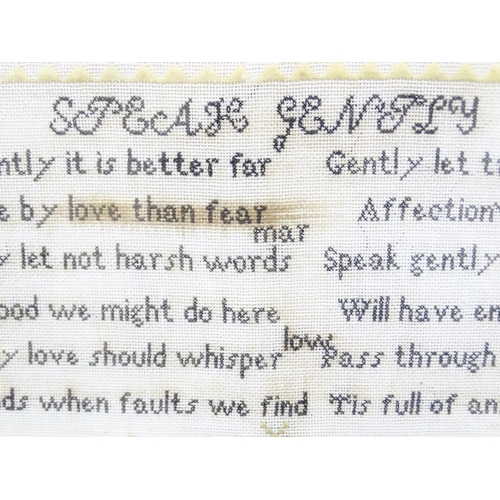 SPEAK GENTLY
ntly it is better far
e by love than fear
y let not harsh words mar
ood we might do here
y love should whisper love
ds when faults we find
Gently let t
Affection
Speak gently
Will have en
Pass through
Tis full of an